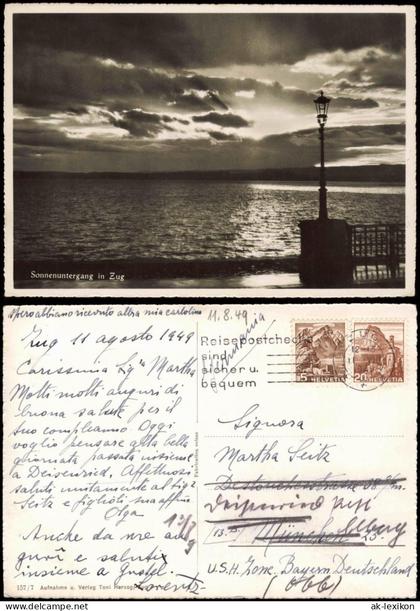 Sonnenuntergang in Zug
spero abbiano ricevuto altra mia cartolina
11.8.49
Zug 11 agosto 1949
Carissima Sig.ª Martha
Molti molti auguri di
buona salute per il
suo compleanno Oggi
voglio pensare alla bella
giornata passata insieme
a Deisenried. Affettuosi
saluti unitamente al Sig.
Seitz e figlioli sua affma
Olga
Anche da me au
guri e saluti
insieme a
Lorentz
Reisepostcheck
sind
sicher u.
bequem
5 HELVETIA
20 HELVETIA
Signora
Martha Seitz
München 23
U.S.H. Zone. Bayern Deutschland
(Obb)
157/7 Aufnahme u. Verlag Toni Herzog,
ak-lexikon.de